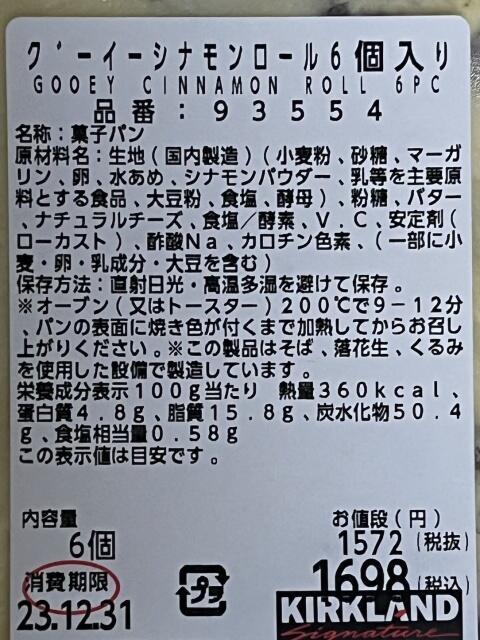 グーイーシナモンロール6個入り
GOOEY CINNAMON ROLL 6PC
品番:93554
名称:菓子パン
原材料名:生地(国内製造)(小麦粉、砂糖、マーガ
リン、卵、水あめ、シナモンパウダー、乳等を主要原
料とする食品、大豆粉、食塩、酵母)、粉糖、バター
、ナチュラルチーズ、食塩/酵素、V.C、安定剤(
ローカスト)、酢酸Na、カロチン色素、(一部に小
麦・卵・乳成分・大豆を含む)
保存方法:直射日光・高温多湿を避けて保存。
※オーブン(又はトースター)200℃で9-12分
、パンの表面に焼き色が付くまで加熱してからお召し
上がりください。※この製品はそば、落花生、くるみ
を使用した設備で製造しています。
栄養成分表示100g当たり 熱量360kcal、
蛋白質4.8g、脂質15.8g、炭水化物50.4
g、食塩相当量0.58g
この表示値は目安です。
内容量 お値段(円)
6個 1572(税抜)
消費期限 1698(税込)
23.12.31 プラ KIRKLAND
Signature